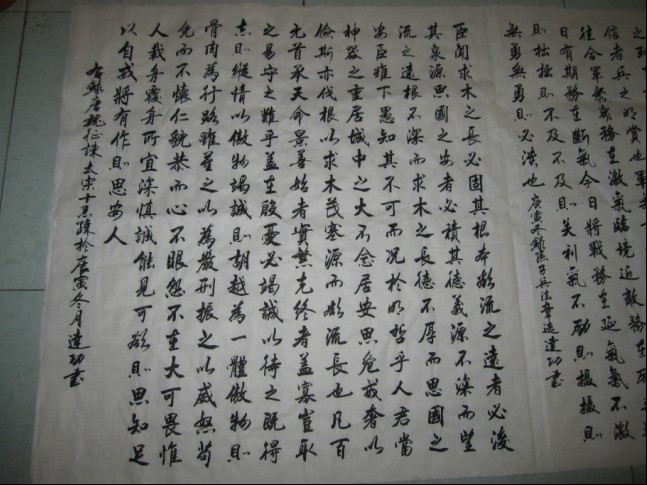 信者兵之明賞也
合軍聚衆務在激氣臨境近敵務在
日有期務在斷氣今日將戰務在延氣氣不激
則拙拙則不及不及則失利氣不勵則懾懾則
無勇無勇則必潰也 庚寅冬錄孫子兵法章選達功書
臣聞求木之長必固其根本欲流之遠者必浚
其泉源思國之安者必積其德義源不深而望
流之遠根不深而求木之長德不厚而思國之
安臣雖下愚知其不可而況於明哲乎人君當
神器之重居域中之大不念居安思危戒奢以
儉斯亦伐根以求木茂塞源而欲流長也凡百
元首承天命景善始者實繁克終者蓋寡豈取
之易守之難乎蓋在殷憂必竭誠以待之既得
志則縱情以傲物竭誠則胡越為一體傲物則
骨肉為行路雖董之以為嚴刑振之以威怒苟
免而不懷仁貌恭而心不服怨不在大可畏惟
人載舟覆舟所宜深慎誠能見可欲則思知足
以自戒將有作則思安人
右錄唐魏征諫太宗十思疏於庚寅冬月達功書